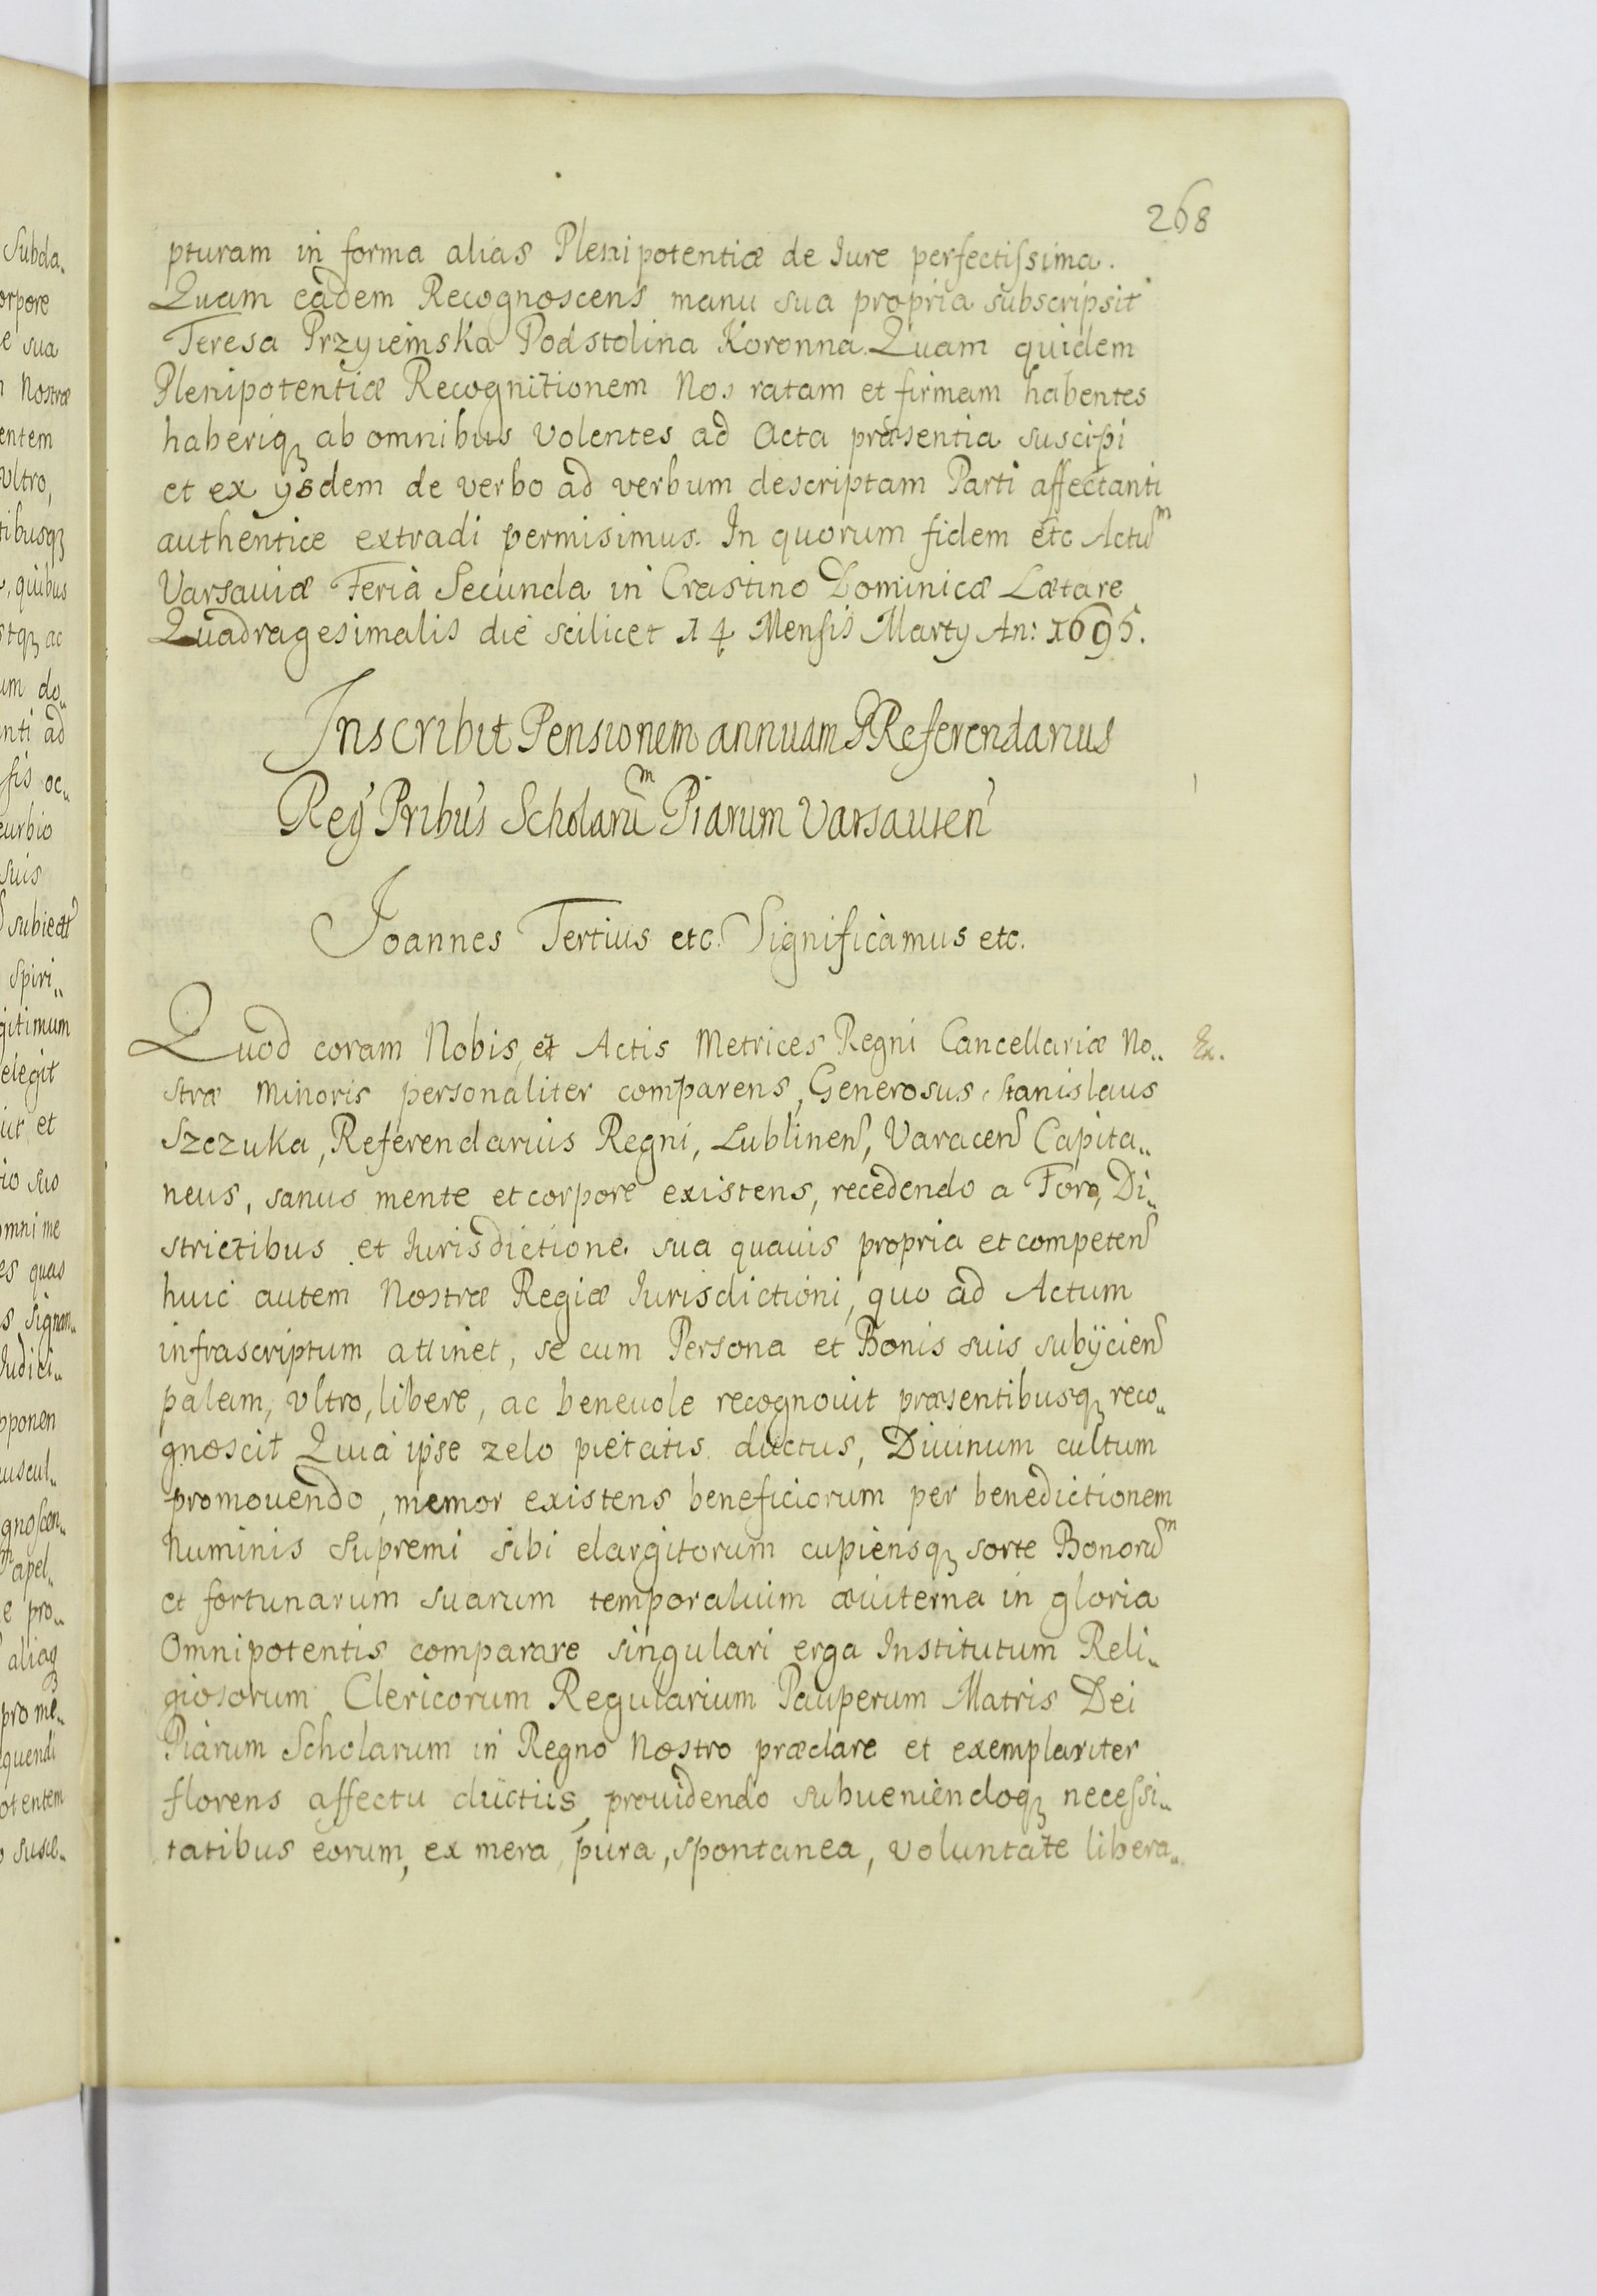 268
pturam in forma alias Plenipotentiæ de Iure perfectissima.
Quam eadem Recognoscens manu sua propria subscripsit
Teresa Przyiemska Podstolina Koronna. Quam quidem
Plenipotentiæ Recognitionem Nos ratam et firmam habentes
haberiq₃ ab omnibus volentes ad Acta præsentia suscipi
et ex ysdem de verbo ad verbum descriptam Parti affectanti
authentice extradi permisimus. In quorum fidem etc Actuᵐ
Varsaviæ Feria Secunda in Crastino Dominicæ Lætare
Quadragesimalis die scilicet 14 Mensis Marty An: 1695.
Inscribit Pensionem annuam P Referendarius
Reg Pribus Scholaruᵐ Piarum Varsavien
Joannes Tertius etc. Significamus etc.
Quod coram Nobis, et Actis Metrices Regni Cancellariæ No„
Ex.
stræ Minoris personaliter comparens, Generosus Stanislaus
Szczuka, Referendarius Regni, Lublinen, Varacen Capita„
neus, sanus mente et corpore existens, recedendo a Foro, Di„
strictibus et Iurisdictione sua quavis propria et competen
huic autem Nostræ Regiæ Iurisdictioni, quo ad Actum
infrascriptum attinet, se cum Persona et Bonis suis subÿcien
palam, vltro, libere, ac benevole recognovit præsentibusq₃ reco„
gnoscit Quia ipse zelo pietatis ductus, Divinum cultum
promovendo, memor existens beneficiorum per benedictionem
Numinis Supremi sibi elargitorum cupiensq₃ sorte Bonoruᵐ
et fortunarum suarum temporalium æviterna in gloria
Omnipotentis comparare singulari erga Institutum Reli„
giosorum Clericorum Regularium Pauperum Matris Dei
Piarum Scholarum in Regno Nostro præclare et exemplariter
florens affectu ductus, providendo subveniendoq₃ necessi„
tatibus eorum, ex mera, pura, spontanea, voluntate libera„